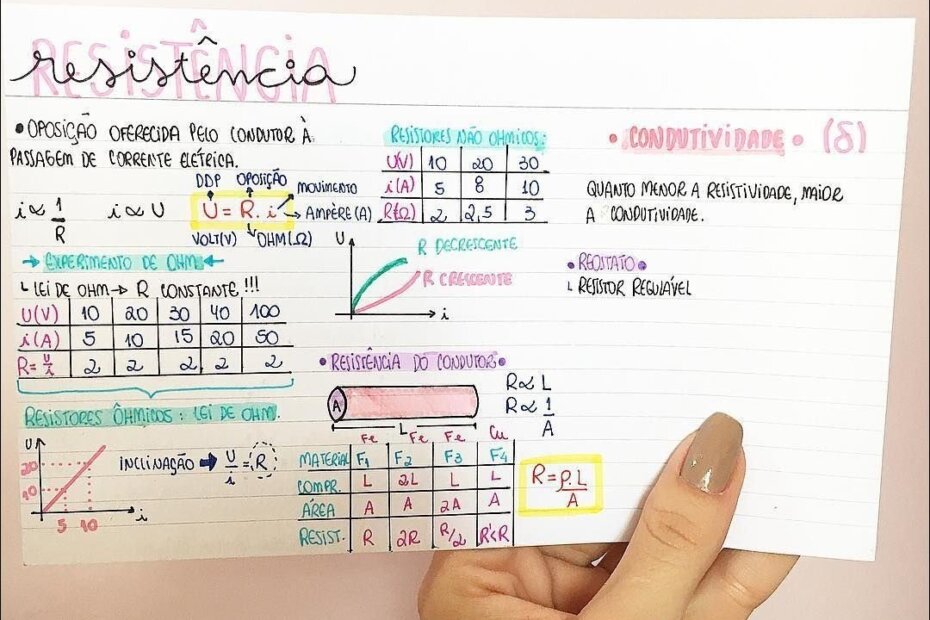 RESISTÊNCIA
resistência
• OPOSIÇÃO OFERECIDA PELO CONDUTOR À
PASSAGEM DE CORRENTE ELÉTRICA.
DDP OPOSIÇÃO
MOVIMENTO
i ∝ 1/R i ∝ U U = R. i → AMPÈRE (A)
VOLT(V) OHM(Ω)
→ EXPERIMENTO DE OHM ←
└ LEI DE OHM → R CONSTANTE !!!
U(V) 10 20 30 40 100
i(A) 5 10 15 20 50
R= U/i 2 2 2 2 2
RESISTORES ÔHMICOS: LEI DE OHM.
U
20
10
5 10 i
INCLINAÇÃO ➡ U/i = R
RESISTORES NÃO OHMICOS:
U(V) 10 20 30
i(A) 5 8 10
R(Ω) 2 2,5 3
U
R DECRESCENTE
R CRESCENTE
i
• RESISTÊNCIA DO CONDUTOR •
A
L
R ∝ L
R ∝ 1/A
Fe Fe Fe Cu
MATERIAL F1 F2 F3 F4
COMPR. L 2L L L
ÁREA A A 2A A
RESIST. R 2R R/2 R'<R
R = ρ.L/A
• CONDUTIVIDADE • (δ)
QUANTO MENOR A RESISTIVIDADE, MAIOR
A CONDUTIVIDADE.
• REOSTATO •
└ RESISTOR REGULÁVEL